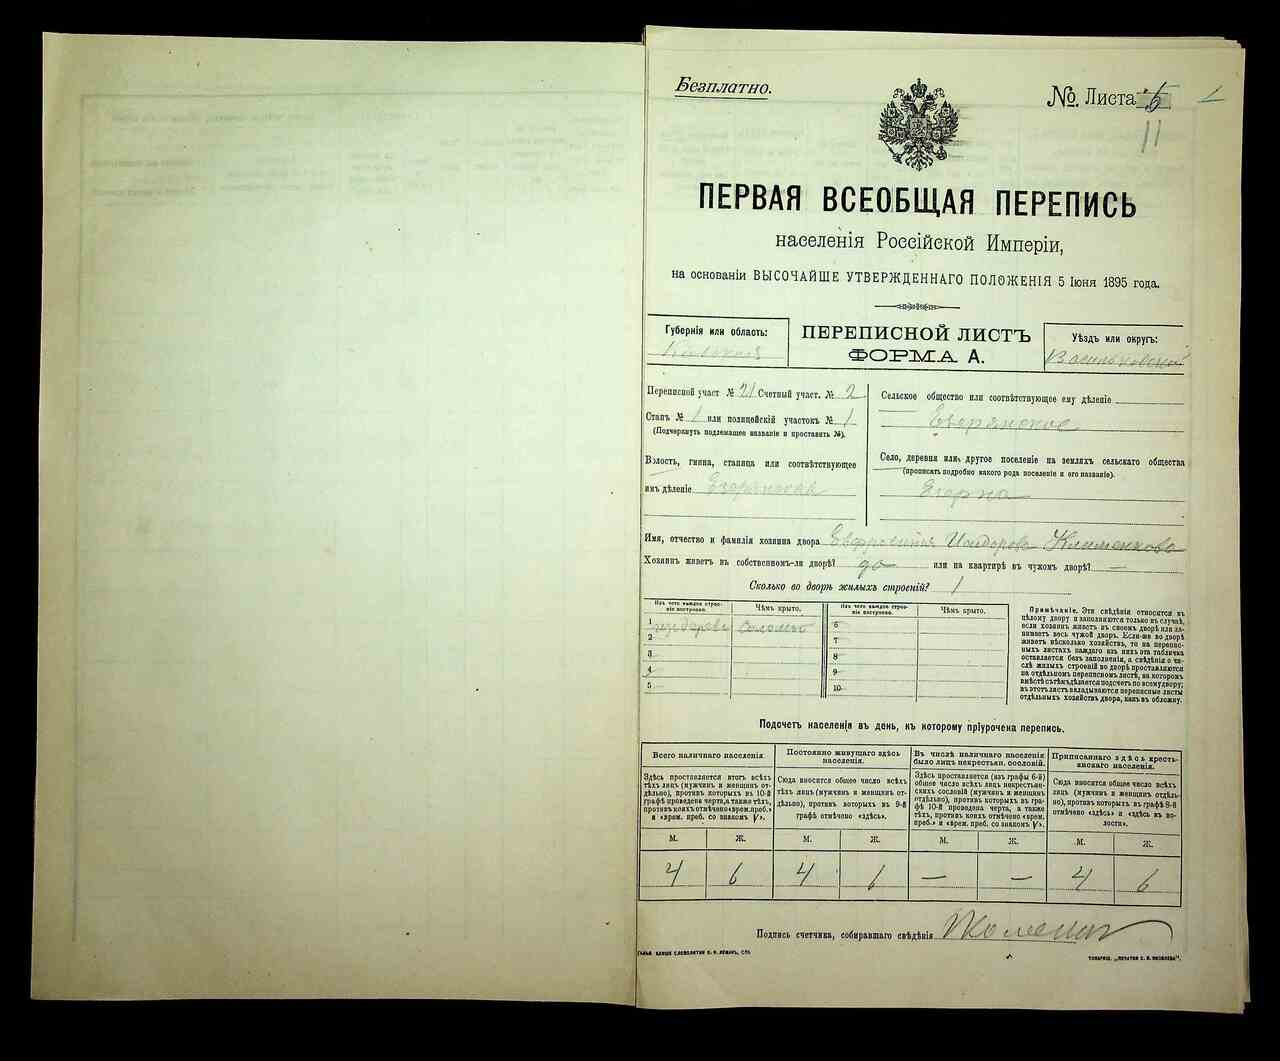 Безплатно.
№ Листа 5
11
ПЕРВАЯ ВСЕОБЩАЯ ПЕРЕПИСЬ
населенія Россійской Имперіи,
на основаніи ВЫСОЧАЙШЕ УТВЕРЖДЕННАГО ПОЛОЖЕНІЯ 5 Іюня 1895 года.
Губернія или область:
Кіевская
ПЕРЕПИСНОЙ ЛИСТЪ
ФОРМА А.
Уѣздъ или округъ:
Васильковскій
Переписной участ № 21 Счетный участ. № 2
Станъ № 1 или полицейскій участокъ № 1
(Подчеркнуть подлежащее названіе и проставить №).
Волость, гмина, станица или соотвѣтствующее
имъ дѣленіе
Сельское общество или соотвѣтствующее ему дѣленіе
Село, деревня или другое поселеніе на земляхъ сельскаго общества
(прописать подробно какого рода поселеніе и его названіе).
Имя, отчество и фамилія хозяина двора Евфросинія Исидорова Клименкова
Хозяинъ живетъ въ собственномъ-ли дворѣ? да или на квартирѣ въ чужомъ дворѣ? —
Сколько во дворѣ жилыхъ строеній? 1
Изъ чего каждое строеніе построено.
Чѣмъ крыто.
Изъ чего каждое строеніе построено.
Чѣмъ крыто.
1 Соломъ 6
2 7
3 8
4 9
5 10
Примѣчаніе. Эти свѣдѣнія относятся къ
цѣлому двору и заполняются только въ случаѣ,
если хозяинъ живетъ въ своемъ дворѣ или занимаетъ
весь чужой дворъ. Если-же во дворѣ
живетъ нѣсколько хозяйствъ, то на переписныхъ
листахъ каждаго изъ нихъ эта табличка
оставляется безъ заполненія, а свѣдѣнія о числѣ
жилыхъ строеній во дворѣ проставляются
на отдѣльномъ переписномъ листѣ, на которомъ
вмѣстѣ съ тѣмъ дѣлается подсчетъ по всему двору;
въ этотъ листъ вкладываются переписные листы
отдѣльныхъ хозяйствъ двора, какъ въ обложку.
Подсчетъ населенія въ день, къ которому пріурочена перепись.
Всего наличнаго населенія.
Постоянно живущаго здѣсь населенія.
Въ числѣ наличнаго населенія было лицъ некрестьян. сословій.
Приписаннаго здѣсь крестьянскаго населенія.
Здѣсь проставляется итогъ всѣхъ
тѣхъ лицъ (мужчинъ и женщинъ отдѣльно),
противъ которыхъ въ 10-й
графѣ проведена черта, а также тѣхъ,
противъ коихъ отмѣчено «врем. преб.»
и «врем. преб. со знакомъ V».
Сюда вносится общее число всѣхъ
тѣхъ лицъ (мужчинъ и женщинъ отдѣльно),
противъ которыхъ въ 9-й
графѣ отмѣчено «здѣсь».
Здѣсь проставляется (изъ графы 6-й)
общее число всѣхъ лицъ некрестьянскихъ
сословій (мужчинъ и женщинъ
отдѣльно), противъ которыхъ въ графѣ
10-й проведена черта, а также
тѣхъ, противъ коихъ отмѣчено «врем.
преб.» и «врем. преб. со знакомъ V».
Сюда вносится общее число всѣхъ
лицъ (мужчинъ и женщинъ отдѣльно),
противъ которыхъ въ графѣ 8-й
отмѣчено «здѣсь» и «здѣсь въ волости».
М. Ж. М. Ж. М. Ж. М. Ж.
4 6 4 6 — — 4 6
Подпись счетчика, собиравшаго свѣдѣнія